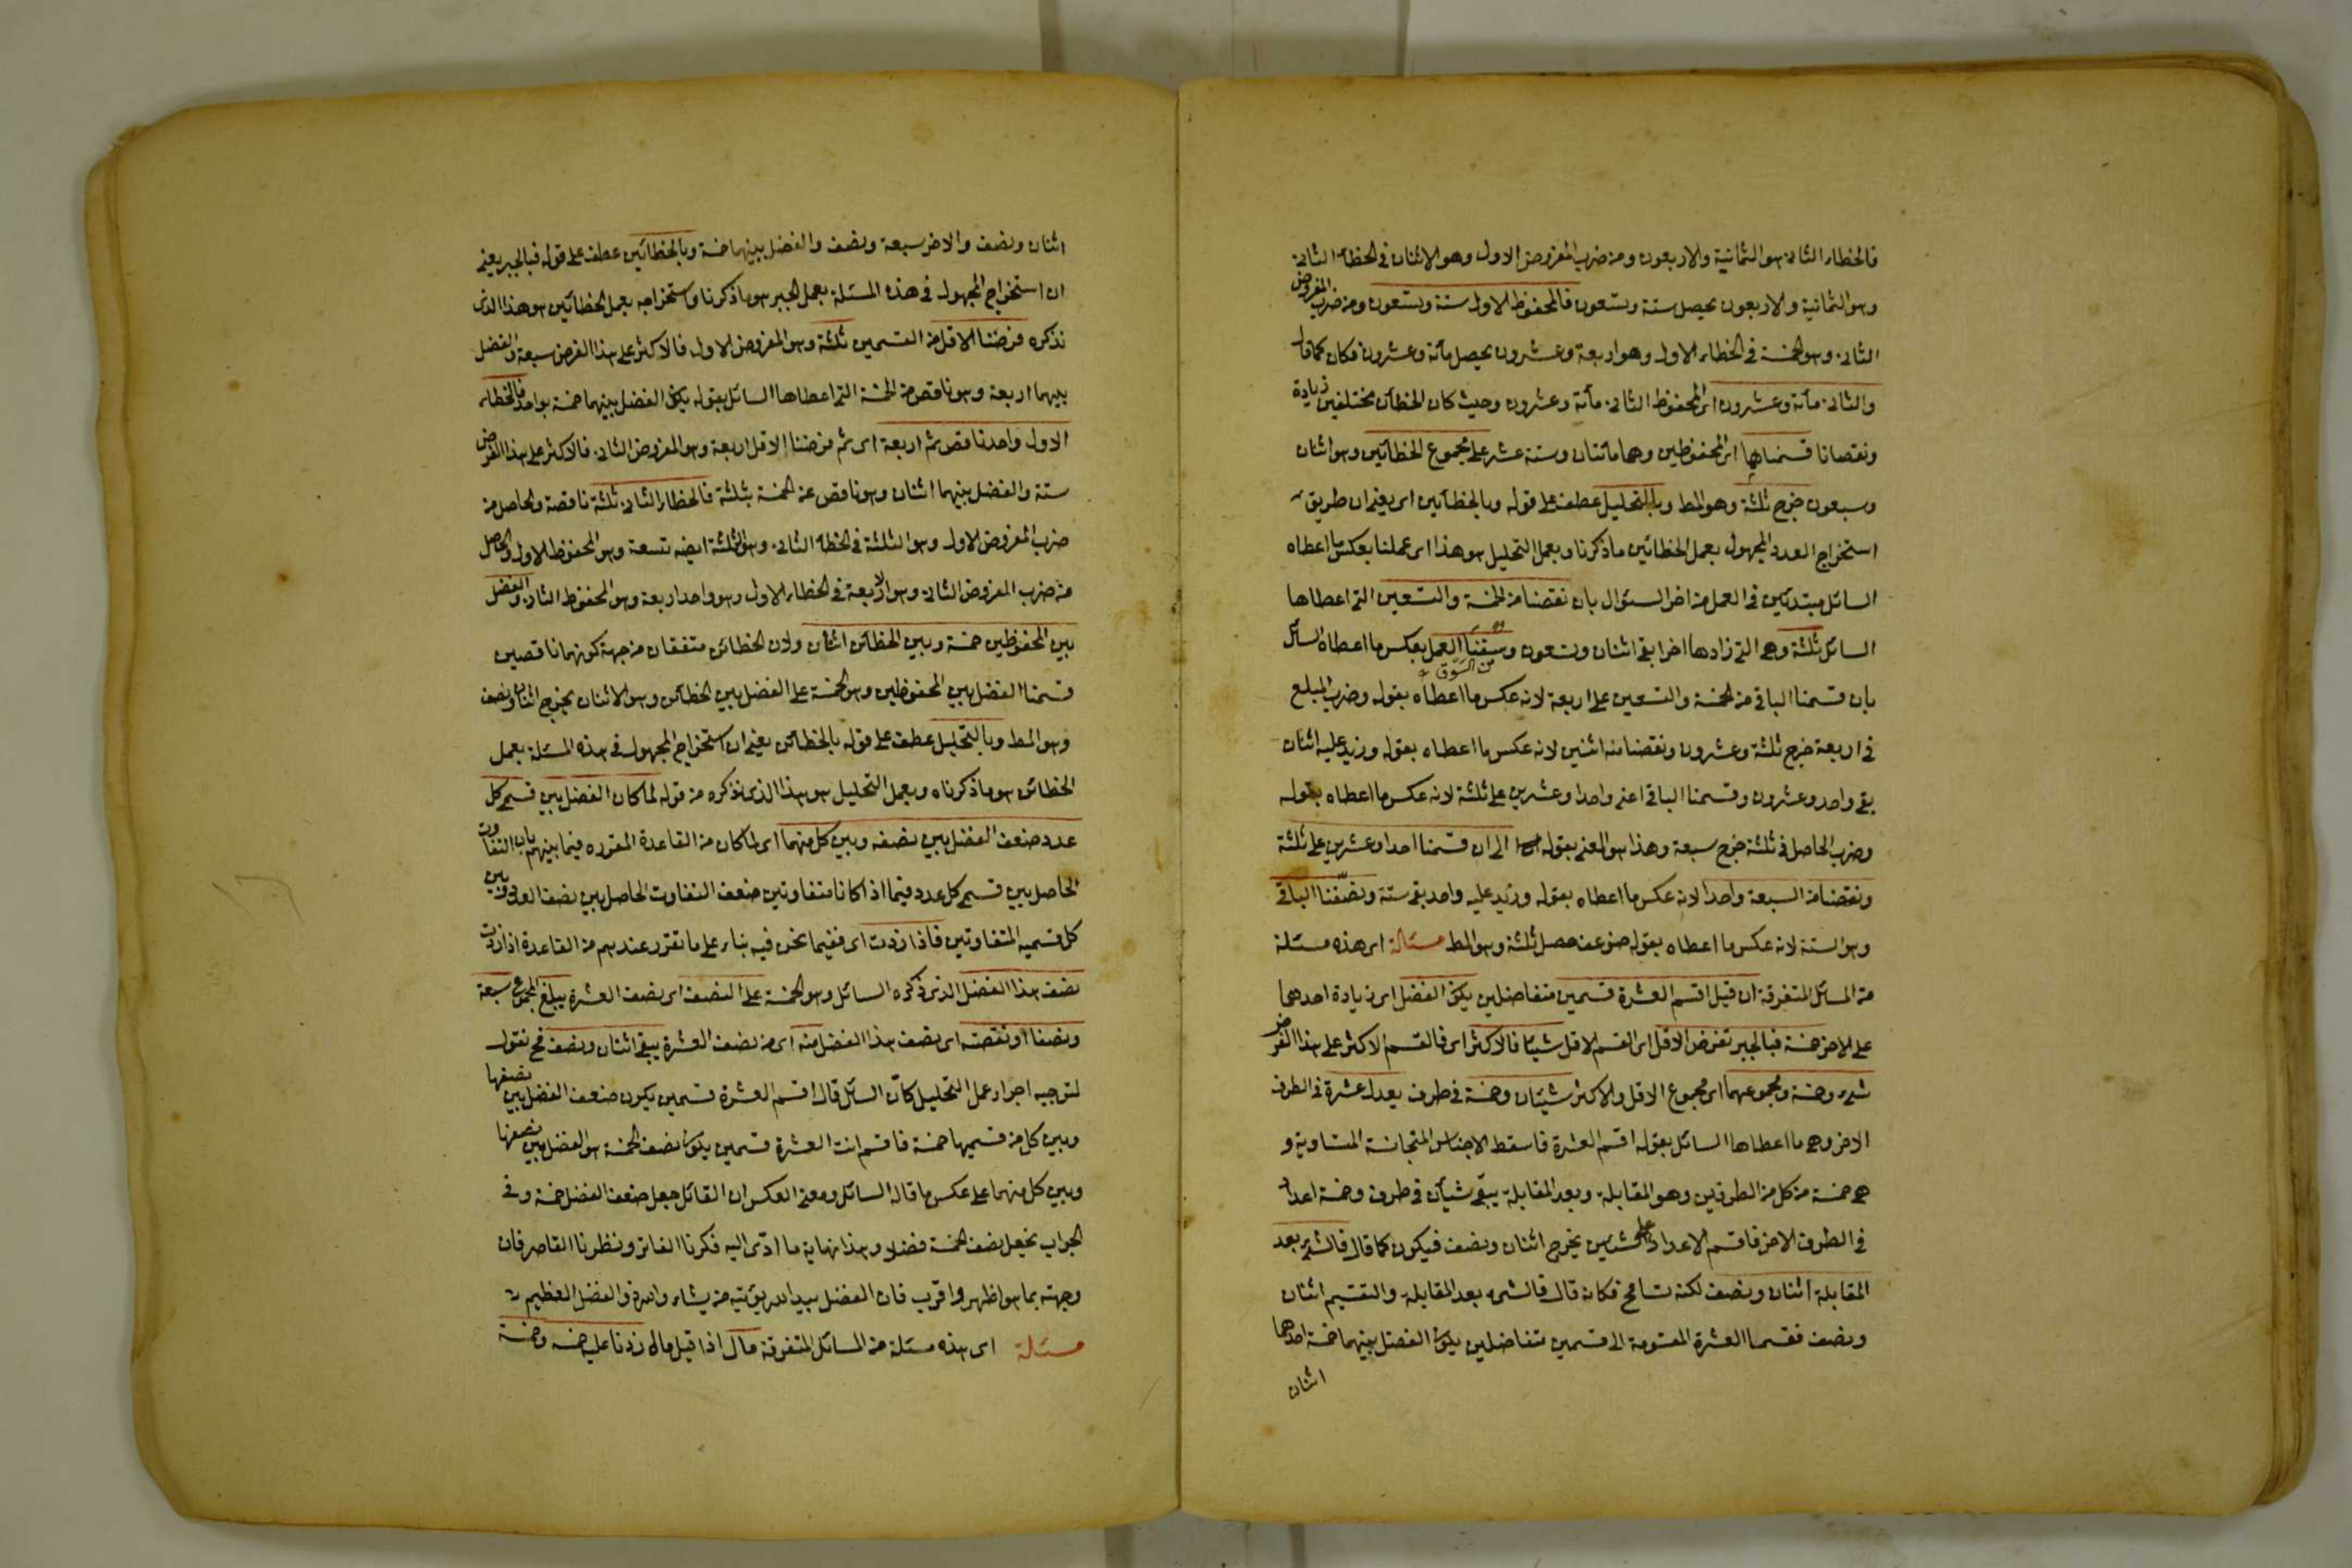 فالخطاء الثانى هو الثمانية والاربعون ومن ضرب المفروض الاول وهو الاثنان فى الخطاء الثانى
وهو الثمانية والاربعون يحصل ستة وتسعون فالمحفوظ الاول ستة وتسعون ومن ضرب المفروض
الثانى وهو الخمسة فى الخطاء الاول وهو اربعة وعشرون يحصل مأة وعشرون فكان كما قال
والثانى مأتة وعشرون اى المحفوظ الثانى مأتة وعشرون وحيث كان الخطآن مختلفين زيادة
ونقصانا قسمناهما اى المحفوظين وهما مأتتان وستة عشر على مجموع الخطائين وهو اثنان
وسبعون خرج ثلثة وهو المط وبالتحليل عطف على قوله وبالخطائين اى يعنى ان طريق
استخراج العدد المجهول بعمل الخطائين ما ذكرنا وبعمل التحليل هو هذا اى عملنا بعكس ما اعطاه
السائل مبتدئين فى العمل من اخر السئوال بان نقصنا من الخمسة والتسعين التى اعطاها
السائل ثلثة وهى التى زادها اخرا بقى اثنان وتسعون وسقنا العمل بعكس ما اعطاه السائل
من السوق
بان قسمنا الباقى من الخمسة والتسعين على اربعة لانه عكس ما اعطاه بقوله وضرب المبلغ
فى اربعة خرج ثلثة وعشرون ونقصنا منه اثنين لانه عكس ما اعطاه بقوله وزيد عليه اثنان
بقى واحد وعشرون وقسمنا الباقى اعنى واحدا وعشرين على ثلثة لانه عكس ما اعطاه بقوله
وضرب الحاصل فى ثلثة خرج سبعة وهذا هو المعنى بقوله الى ان قسمنا احدا وعشرين على ثلثة
ونقصنا من السبعة واحدا لانه عكس ما اعطاه بقوله وزيد عليه واحد بقى ستة ونصّفنا الباقى
وهو الستة لانه عكس ما اعطاه بقوله ضوعف حصل ثلثة وهو المط مسئالة اى هذه مسئلة
من المسائل المتفرقة ان قيل اقسم العشرة قسمين متفاضلين يكون الفضل اى زيادة احدهما
على الاخر خمسة فبالجبر تفرض الاقل اى القسم الاقل شيئا فالاكثر اى فالقسم الاكثر على هذا الفرض
شىء وخمسة ومجموعهما اى مجموع الاقل والاكثر شيئان وخمسة فى طرف يعدل عشرة فى الطرف
الاخر وهى ما اعطاها السائل بقوله اقسم العشرة فاسقط الاجناس المتجانسة المتساوية و
هى خمسة من كل من الطرفين وهو المقابلة وبعد المقابلة يبقى شيآن فى طرف وخمسة اعداد
فى الطرف الاخر فاقسم الاعداد على شيئين يخرج اثنان ونصف فيكون كما قال فالشىء بعد
المقابلة اثنان ونصف لكنه تسامح فكانه قال فالشىء بعد المقابلة والتقسيم اثنان
ونصف فقسما العشرة المقسومة الى قسمين متفاضلين يكون الفضل بينهما خمسة احدهما
اثنان
اثنان ونصف والاخر سبعة ونصف والفضل بينهما خمسة وبالخطائين عطف على قوله فبالجبر يعنى
ان استخراج المجهول فى هذه المسئلة بعمل الجبر هو ما ذكرنا واستخراجه بعمل الخطائين هو هذا الذى
نذكره فرضنا الاقل من القسمين ثلثة وهو المفروض الاول فالاكثر على هذا الفرض سبعة والفضل
بينهما اربعة وهو ناقص من الخمسة التى اعطاها السائل بقوله يكون الفضل بينهما خمسة بواحد فالخطاء
الاول واحد ناقص ثم اربعة اى ثم فرضنا الاقل اربعة وهو المفروض الثانى فالاكثر على هذا الفرض
ستة والفضل بينهما اثنان وهو ناقص عن الخمسة بثلثة فالخطاء الثانى ثلثة ناقصة والحاصل من
ضرب المفروض الاول وهو الثلثة فى الخطاء الثانى وهو الثلثة ايضه تسعة وهو المحفوظ الاول والحاصل
من ضرب المفروض الثانى وهو الاربعة فى الخطاء الاول وهو واحد اربعة وهو المحفوظ الثانى والفضل
بين المحفوظين خمسة وبين الخطائين اثنان ولان الخطائين متفقان من جهة كونهما ناقصين
قسمنا الفضل بين المحفوظين وهو الخمسة على الفضل بين الخطائين وهو الاثنان يخرج اثنان ونصف
وهو المط وبالتحليل عطف على قوله بالخطائين يعنى ان استخراج المجهول فى هذه المسئلة بعمل
الخطائين هو ما ذكرناه وبعمل التحليل هو هذا الذى نذكره من قوله لما كان الفضل بين قسمى كل
عدد ضعف الفضل بين نصفه وبين كل منهما اى لما كان من القاعدة المقررة فيما بينهم بان التفاوت
الحاصل بين قسمى كل عدد فيما اذا كانا متفاوتين ضعف التفاوت الحاصل بين نصف العدد وبين
كل قسميه المتفاوتين فاذا زدت اى ففيما نحن فيه بناء على ما تقرر عندهم من القاعدة اذا زدت
نصف هذا الفضل الذى ذكره السائل وهو الخمسة على النصف اى نصف العشرة يبلغ المجموع سبعة
ونصفا او نقصته اى نصف هذا الفضل منه اى من نصف العشرة يبقى اثنان ونصف فح نقول
لتوجيه اجراء عمل التحليل كانّ السائل قال اقسم العشرة قسمين يكون ضعف الفضل بين نصفها
وبين كل من قسميها خمسة فاقسم انت العشرة قسمين يكون نصف الخمسة هو الفضل بين نصفها
وبين كل منهما على عكس ما قاله السائل ومعنى العكس ان القائل جعل ضعف الفضل خمسة وفى
الجواب نجعل نصف الخمسة فضلا وهذا نهاية ما ادّى اليه فكرنا الفاتر ونظرنا القاصر فان
وجهته بما هو اظهر واقرب فان الفضل بيد الله يؤتيه من يشاء والله ذو الفضل العظيم
مسئلة اى هذه مسئلة من المسائل المتفرقة مال اذا قيل مال زدنا عليه خمسه وخمسة